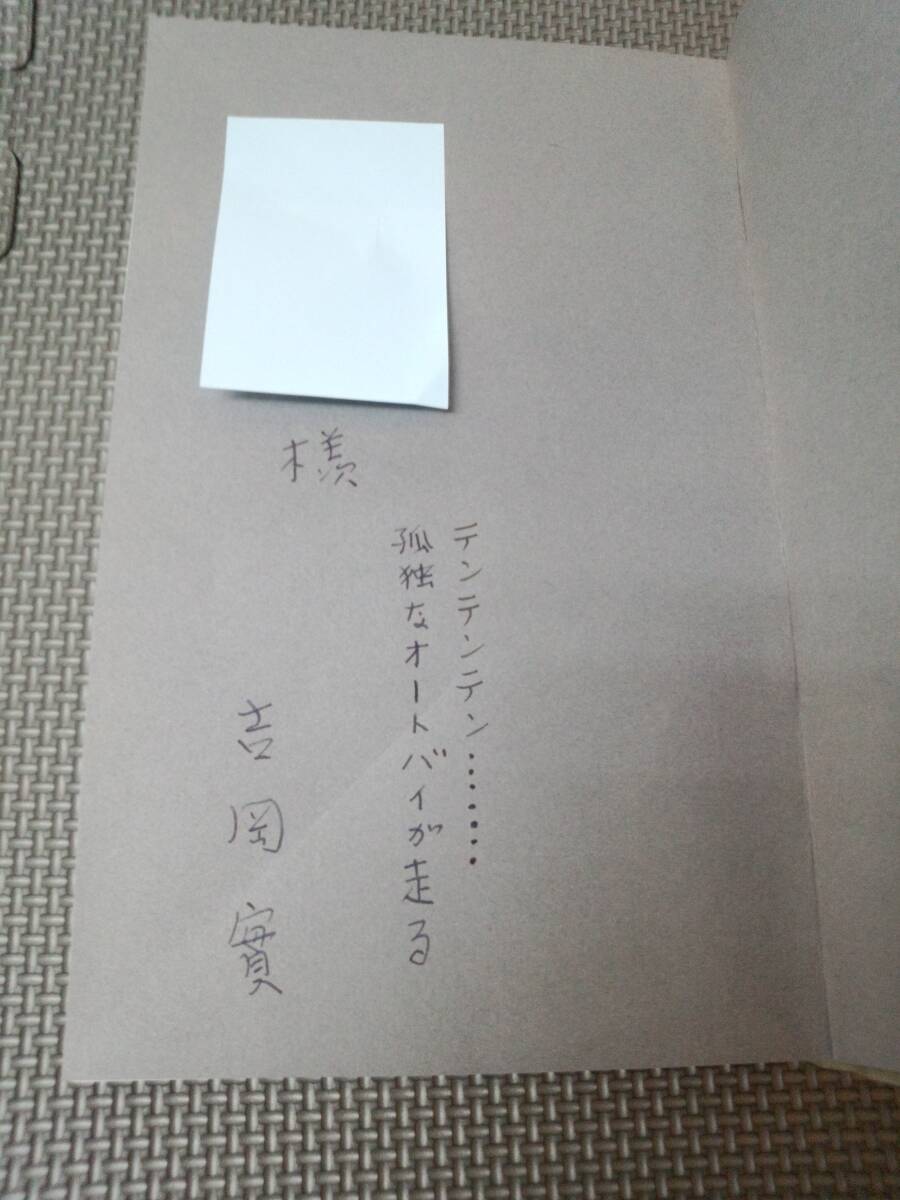 テンテンテンテン・・・・・・・
孤独なオートバイが走る
様
吉岡實